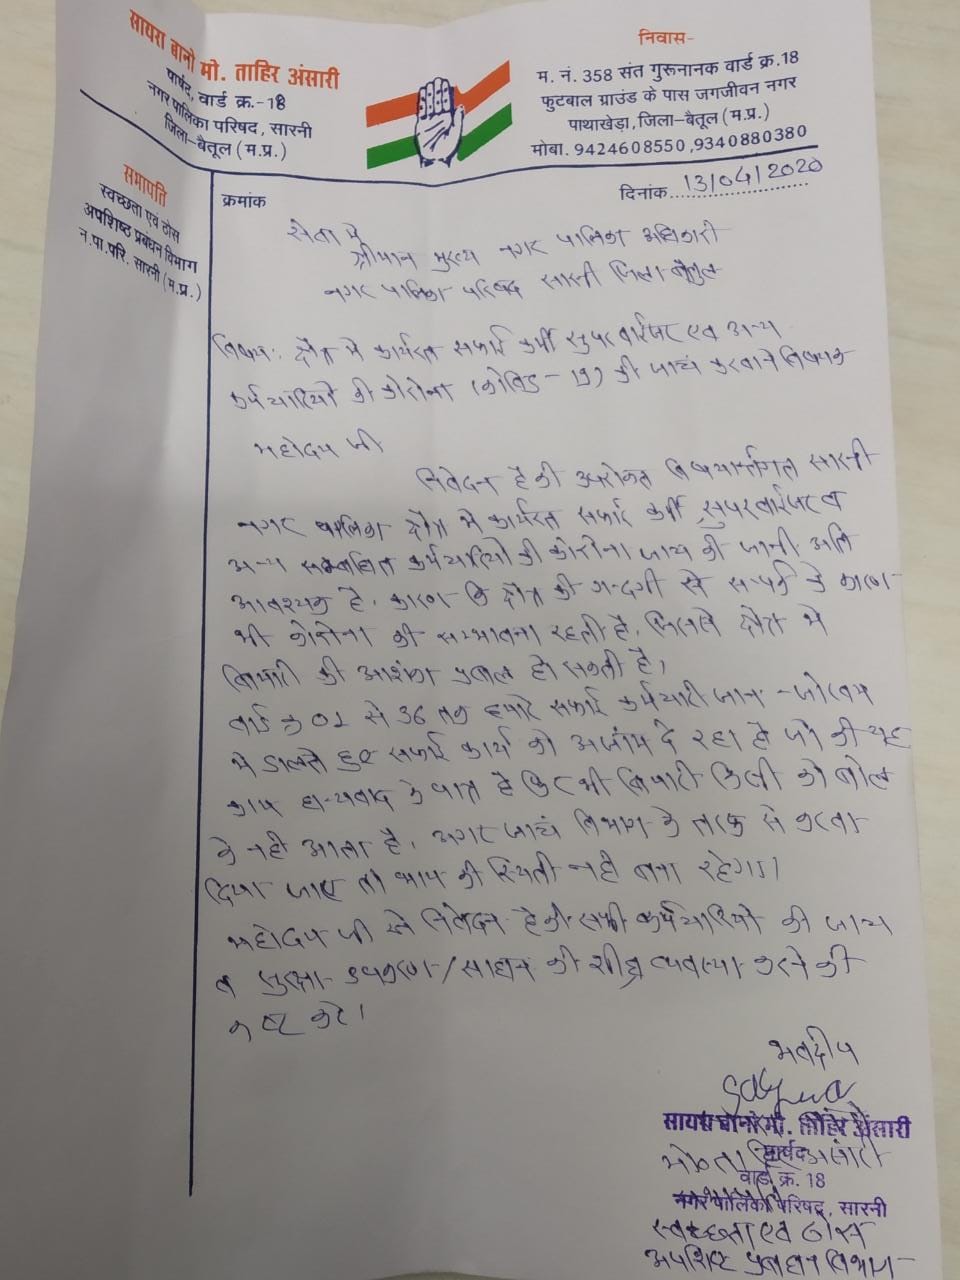 सायरा बानो मो. ताहिर अंसारी
पार्षद, वार्ड क्र.-18
नगर पालिका परिषद, सारनी
जिला-बैतूल (म.प्र.)
निवास-
म. नं. 358 संत गुरूनानक वार्ड क्र.18
फुटबाल ग्राउंड के पास जगजीवन नगर
पाथाखेड़ा, जिला-बैतूल (म.प्र.)
मोबा. 9424608550 ,9340880380
सभापति
स्वच्छता एवं ठोस
अपशिष्ठ प्रबंधन विभाग
न.पा.परि. सारनी (म.प्र.)
क्रमांक
दिनांक 13/04/2020
सेवा मे
श्रीमान मुख्य नगर पालिका अधिकारी
नगर पालिका परिषद सारनी जिला बैतुल
विषय: क्षेत्र मे कार्यरत सफाई कर्मी सुपरवाईजर एवं अन्य
कर्मचारियो की कोरोना (कोविड-19) की जाचं करवाने विषयक
महोदय जी
निवेदन है की उपरोक्त विषयार्न्तगत सारनी
नगर पालिका क्षेत्र मे कार्यरत सफाई कर्मी सुपरवाईजर व
अन्य सम्बधित कर्मचारियो की कोरोना जाच की जानी अति
आवश्यक है. कारण कि क्षेत्र की गन्दगी से सम्पर्क के कारण
भी कोरोना की सम्भावना रहती है. जिससे क्षेत्र मे
बिमारी की आशंका प्रबल हो सकती है।
वार्ड क्र 01 से 36 तक हमारे सफाई कर्मचारी जान-जोखम
मे डालते हुए सफाई कार्य को अजांम दे रहा है जो की यह
काम धन्यवाद के पात्र है फिर भी बिमारी किसी को बोल
के नही आता है. अगर जाचं विभाग के तरफ से करवा
दिया जाए तो भाय की स्थिती नही बना रहेगा।
महोदय जी से निवेदन है की सभी कर्मचारियो की जाच
व सुरक्षा उपकरण/साधन की शीघ्र व्यवस्था करने की
कष्ट करे।
भवदीय
सायरा बानो मो. ताहिर अंसारी
पार्षद
वार्ड क्र. 18
नगर पालिका परिषद, सारनी
स्वच्छता एवं ठोस
अपशिष्ट प्रबधन विभाग-